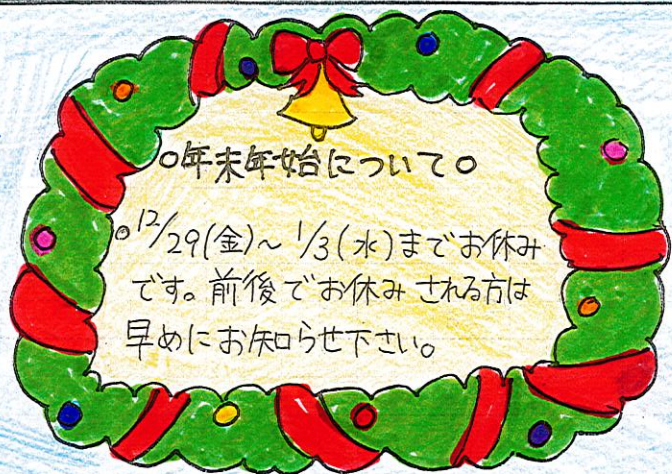 ○年末年始について○
○12/29(金)～1/3(水)までお休み
です。前後でお休みされる方は
早めにお知らせ下さい。